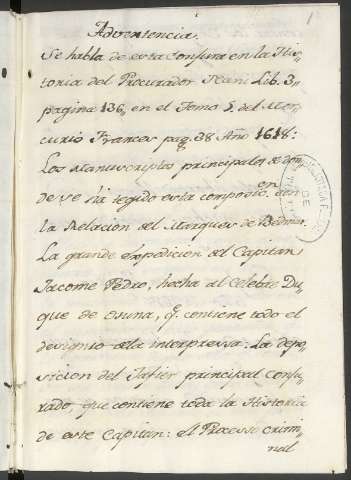 1
Advertencia.
Se habla de esta conjura en la His,,
toria del Procurador Nani Lib. 3,,
pagina 136, en el Tomo 5. del Mer,,
curio Frances pag. 38 Año 1618:
Los Manuscriptos principales de don,,
de se ha tegido esta composic.on son
la Relacion del Marques de Bedmar.
La grande expedicion del Capitan
Jacome Pedro, hecha al celebre Du,,
que de Osuna, q.e contiene todo el
designio de la interpressa: La depo,,
sicion del Jafier principal conju,,
rado que contiene toda la Historia
de este Capitan: el Processo crimi,,
nal